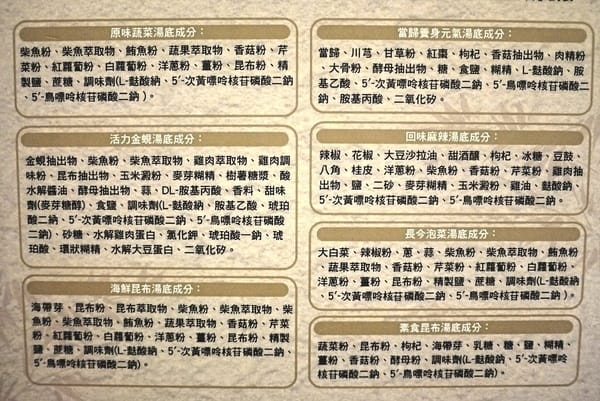 原味蔬菜湯底成分：
柴魚粉、柴魚萃取物、鮪魚粉、蔬果萃取物、香菇粉、芹
菜粉、紅蘿蔔粉、白蘿蔔粉、洋蔥粉、薑粉、昆布粉、精
製鹽、蔗糖、調味劑(L-麩酸納、5´-次黃嘌呤核苷磷酸二鈉
、5´-鳥嘌呤核苷磷酸二鈉 )。
活力金蜆湯底成分：
金蜆抽出物、柴魚粉、柴魚萃取物、雞肉萃取物、雞肉調
味粉、昆布抽出物、玉米澱粉、麥芽糊精、樹薯糖漿、酸
水解醬油、酵母抽出物、蒜、DL-胺基丙酸、香料、甜味
劑(麥芽糖醇)、食鹽、調味劑(L-麩酸納、胺基乙酸、琥珀
酸二納、5´-次黃嘌呤核苷磷酸二鈉、5´-鳥嘌呤核苷磷酸二
鈉)、砂糖、水解雞肉蛋白、氯化鉀、琥珀酸一鈉、琥
珀酸、環狀糊精、水解大豆蛋白、二氧化矽。
海鮮昆布湯底成分：
海帶芽、昆布粉、昆布萃取物、柴魚粉、柴魚萃取物、柴
魚粉、柴魚萃取物、鮪魚粉、蔬果萃取物、香菇粉、芹菜
粉、紅蘿蔔粉、白蘿蔔粉、洋蔥粉、薑粉、昆布粉、精製
鹽、蔗糖、調味劑(L-麩酸納、5´-次黃嘌呤核苷磷酸二鈉、
5´-鳥嘌呤核苷磷酸二鈉)。
當歸養身元氣湯底成分：
當歸、川芎、甘草粉、紅棗、枸杞、香菇抽出物、肉精粉
、大骨粉、酵母抽出物、糖、食鹽、糊精、L-麩酸鈉、胺
基乙酸、5´-次黃嘌呤核苷磷酸二鈉、5´-鳥嘌呤核苷磷酸二
鈉、胺基丙酸、二氧化矽。
回味麻辣湯底成分：
辣椒、花椒、大豆沙拉油、甜酒釀、枸杞、冰糖、豆鼓、
八角、桂皮、洋蔥粉、柴魚粉、香菇粉、芹菜粉、雞肉抽
出物、鹽、二砂、麥芽糊精、玉米澱粉、雞油、麩酸鈉、
5´-次黃嘌呤核苷磷酸二鈉、5´-鳥嘌呤核苷磷酸二鈉。
長今泡菜湯底成分：
大白菜、辣椒粉、蔥、蒜、柴魚粉、柴魚萃取物、鮪魚粉
、蔬果萃取物、香菇粉、芹菜粉、紅蘿蔔粉、白蘿蔔粉、
洋蔥粉、薑粉、昆布粉、精製鹽、蔗糖、調味劑(L-麩酸納
、5´-次黃嘌呤核苷磷酸二鈉、5´-鳥嘌呤核苷磷酸二鈉)。
素食昆布湯底成分：
蔬菜粉、昆布粉、枸杞、海帶芽、乳糖、糖、鹽、糊精、
薑粉、香菇粉、酵母粉、調味劑(L-麩酸納、5´-次黃嘌呤
核苷磷酸二鈉、5´-鳥嘌呤核苷磷酸二鈉)。